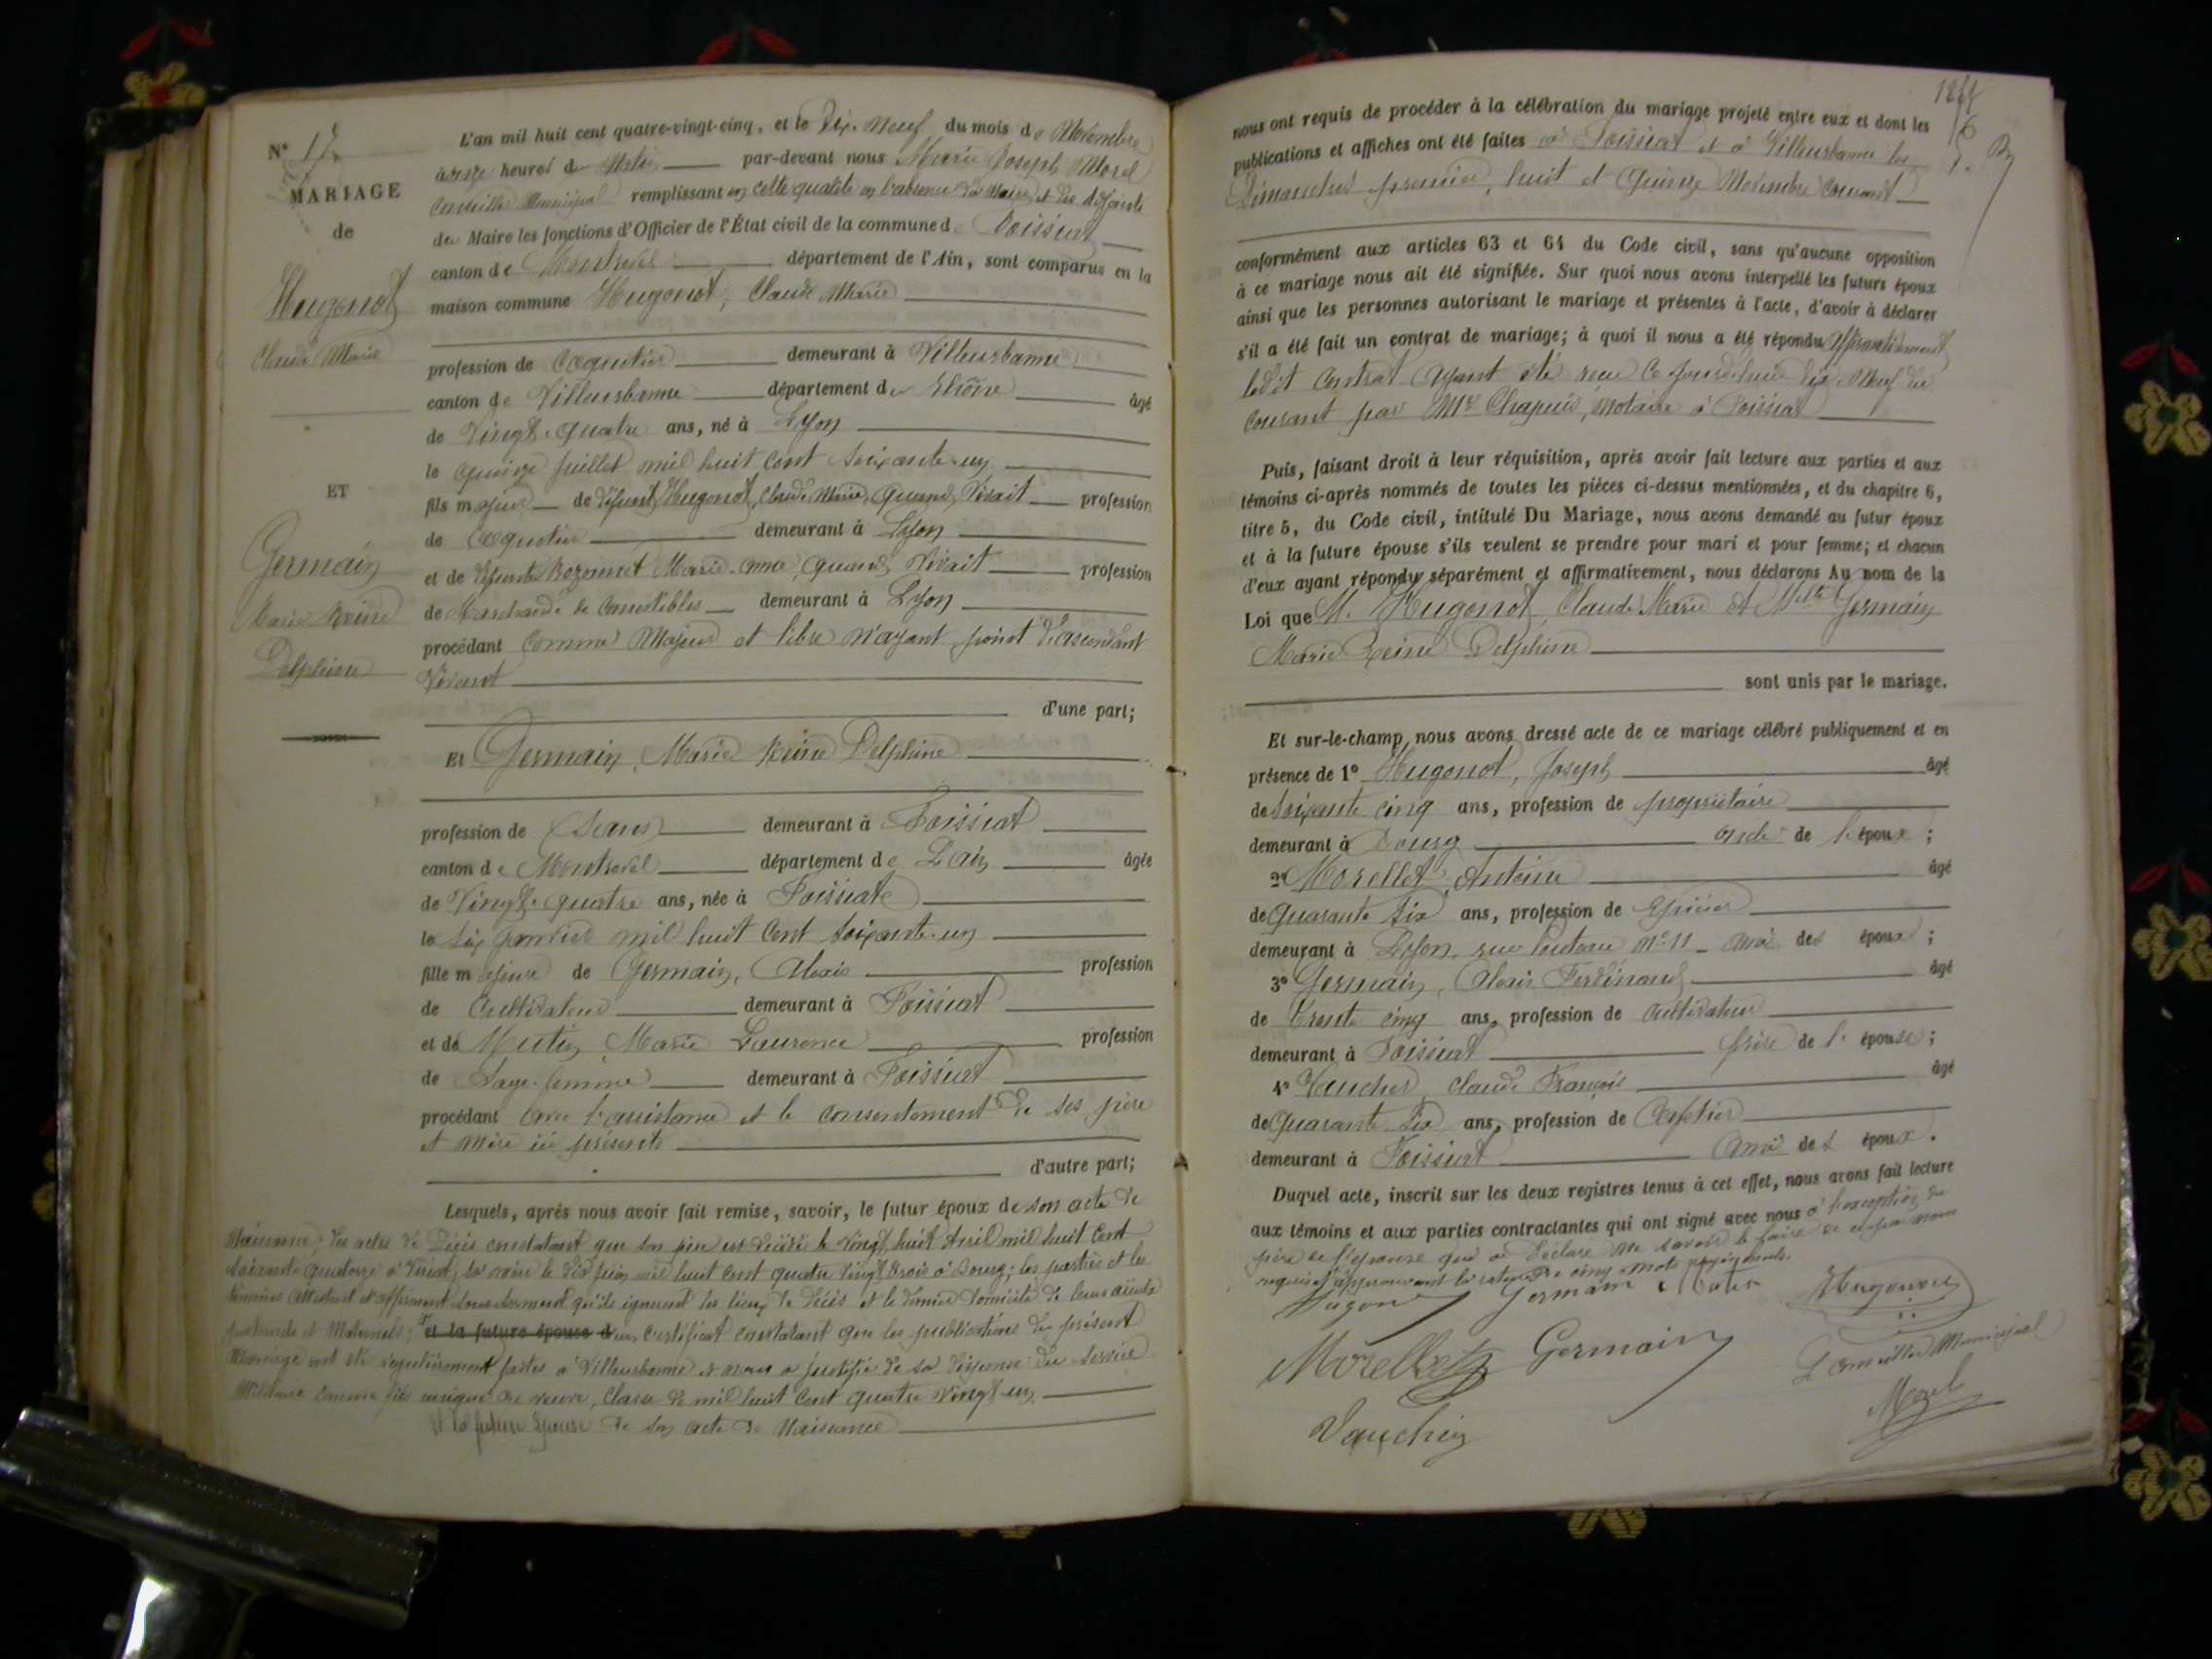 N° 17
MARIAGE
de
Hugonot
Claude Marie
ET
Germain
Marie Reine
Delphine
L'an mil huit cent quatre-vingt-cinq, et le Dix-Neuf du mois de Novembre
à onze heures du Matin par-devant nous Marie Joseph Morel
Conseiller Municipal remplissant en cette qualité en l'absence du Maire et des Adjoints
de Maire les fonctions d'Officier de l'État civil de la commune de Foissiat
canton de Montrevel département de l'Ain, sont comparus en la
maison commune Hugonot, Claude Marie
profession de Coquetier demeurant à Villeurbanne
canton de Villeurbanne département du Rhône âgé
de Vingt-quatre ans, né à Lyon
le quinze Juillet mil huit cent soixante-un
fils majeur de défunt Hugonot, Claude Marie, quand vivait profession
de Coquetier demeurant à Lyon
et de défunte Marie-anne, quand vivait profession
de Marchande de Comestibles demeurant à Lyon
procédant comme Majeur et libre n'ayant point d'ascendant
vivant
d'une part;
Et Germain, Marie Reine Delphine
profession de (Sans) demeurant à Foissiat
canton de Montrevel département de L'ain âgée
de Vingt-quatre ans, née à Foissiat
le six Janvier mil huit cent soixante-un
fille majeure de Germain, Alexis profession
de Cultivateur demeurant à Foissiat
et de Mutin, Marie Laurence profession
de Sage-femme demeurant à Foissiat
procédant avec l'assistance et le consentement de ses père
et mère ici présents
d'autre part;
Lesquels, après nous avoir fait remise, savoir, le futur époux de son acte de
Naissance; des actes de Décès constatant que son père est décédé le Vingt huit Avril mil huit cent
soixante quatorze à Viriat, sa mère le dix juin mil huit cent quatre vingt trois à Bourg; les parties et les
témoins attestent et affirment sous serment qu'ils ignorent les lieux de décès et le dernier domicile de leurs aïeuls
paternels et Maternels; et la future épouse d'un certificat constatant que les publications du présent
Mariage ont été régulièrement faites à Villeurbanne et nous a justifié de sa dispense du service
Militaire comme fils unique de veuve, Classe de mil huit cent quatre vingt un
et la future épouse de son acte de Naissance
nous ont requis de procéder à la célébration du mariage projeté entre eux et dont les
publications et affiches ont été faites à Foissiat et à Villeurbanne les
Dimanches premier, huit et quinze Novembre courant
conformément aux articles 63 et 64 du Code civil, sans qu'aucune opposition
à ce mariage nous ait été signifiée. Sur quoi nous avons interpellé les futurs époux
ainsi que les personnes autorisant le mariage et présentes à l'acte, d'avoir à déclarer
s'il a été fait un contrat de mariage; à quoi il nous a été répondu affirmativement
ledit contrat ayant été reçu ce jourd'hui dix neuf du
courant par Me Chapuis, notaire à Foissiat
Puis, faisant droit à leur réquisition, après avoir fait lecture aux parties et aux
témoins ci-après nommés de toutes les pièces ci-dessus mentionnées, et du chapitre 6,
titre 5, du Code civil, intitulé Du Mariage, nous avons demandé au futur époux
et à la future épouse s'ils veulent se prendre pour mari et pour femme; et chacun
d'eux ayant répondu séparément et affirmativement, nous déclarons Au nom de la
Loi que M. Hugonot, Claude Marie et Melle Germain
Marie Reine Delphine
sont unis par le mariage.
Et sur-le-champ, nous avons dressé acte de ce mariage célébré publiquement et en
présence de 1° Hugonot, Joseph âgé
de soixante cinq ans, profession de propriétaire
demeurant à Bourg oncle de l'époux;
2° Morellet, Antoine âgé
de quarante six ans, profession de Epicier
demeurant à Lyon, rue n° 11 ami des époux;
3° Germain, Alexis Ferdinand âgé
de trente cinq ans, profession de cultivateur
demeurant à Foissiat frère de l'épouse;
4° Vaucher, Claude François âgé
de quarante six ans, profession de Cafetier
demeurant à Foissiat ami des époux.
Duquel acte, inscrit sur les deux registres tenus à cet effet, nous avons fait lecture
aux témoins et aux parties contractantes qui ont signé avec nous à l'exception du
père de l'épouse qui a déclaré ne savoir le faire de ce par nous
requis; approuvant la rature de cinq mots rayés nuls.
Germain Hugonot
Morellet Germain Le Conseiller Municipal
Morel